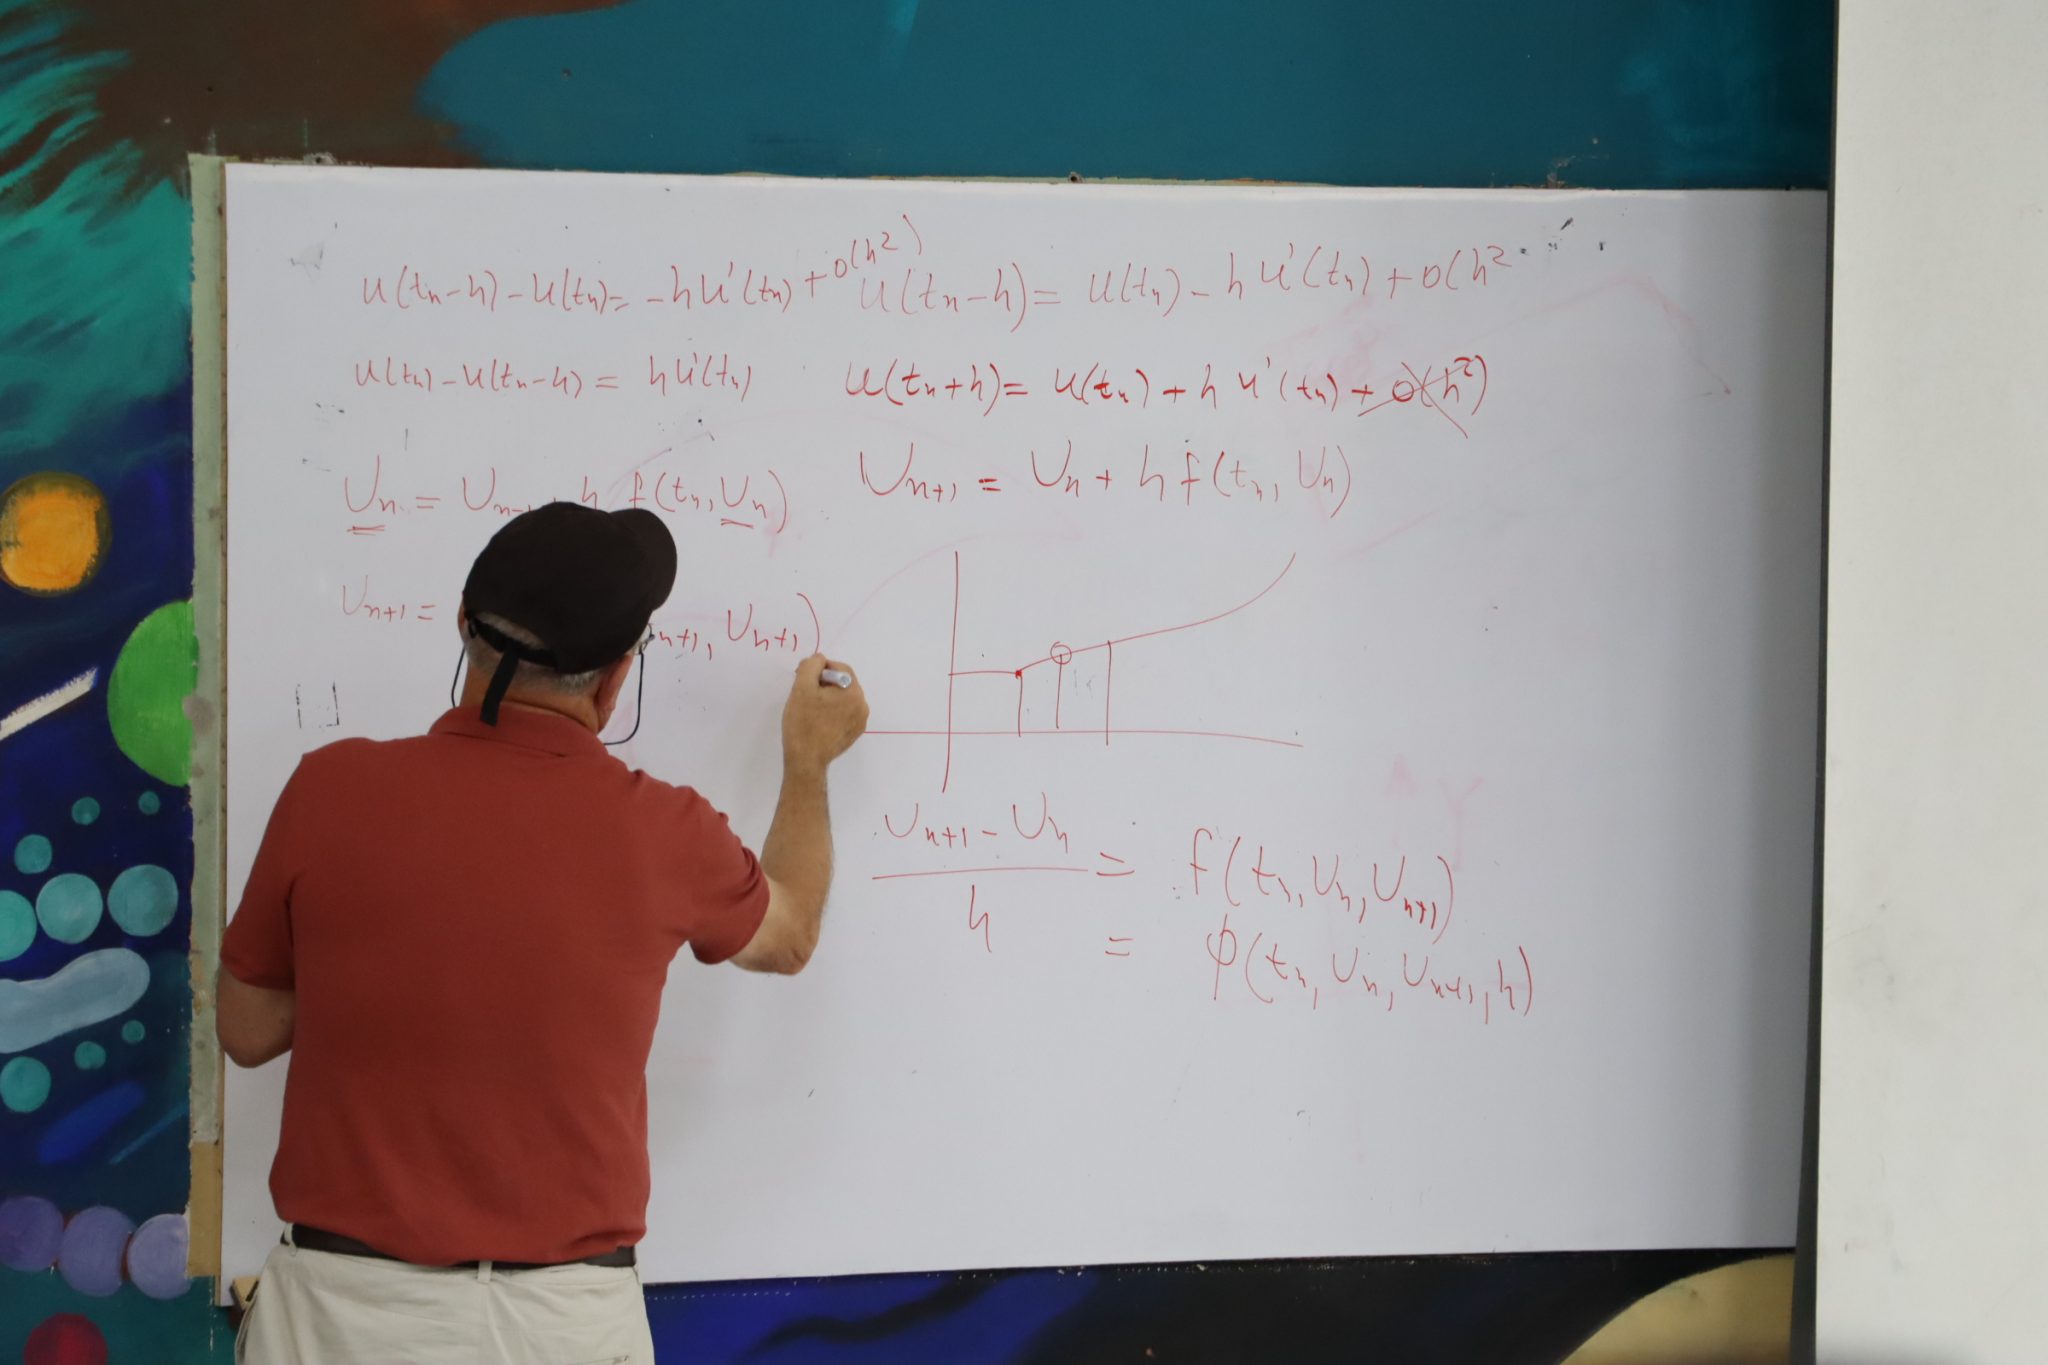 u(tn-h)-u(tn)= -hu'(tn)+o(h²)
u(tn-h)= u(tn)-hu'(tn)+o(h²
u(tn)-u(tn-h)= hu'(tn)
u(tn+h)= u(tn)+hu'(tn)+o(h²)
Un = Un-1 + h f(tn,Un)
Un+1 = Un + h f(tn, Un)
Un+1 =
n+1, Un+1)
Un+1 - Un
= f(tn, Un, Un+1)
h
= φ(tn, Un, Un+1, h)